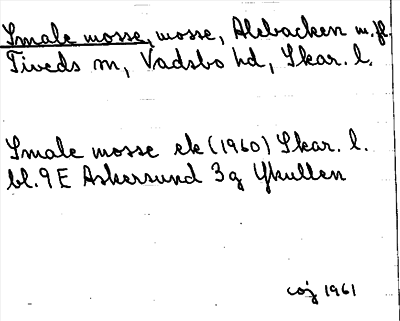 Smale mosse, mosse, Alebacken m.fl.
Tiveds sn, Vadsbo hd, Skar. l.
Smale mosse ek (1960) Skar. l.
bl. 9 E Askersund 3g Ykullen
1961